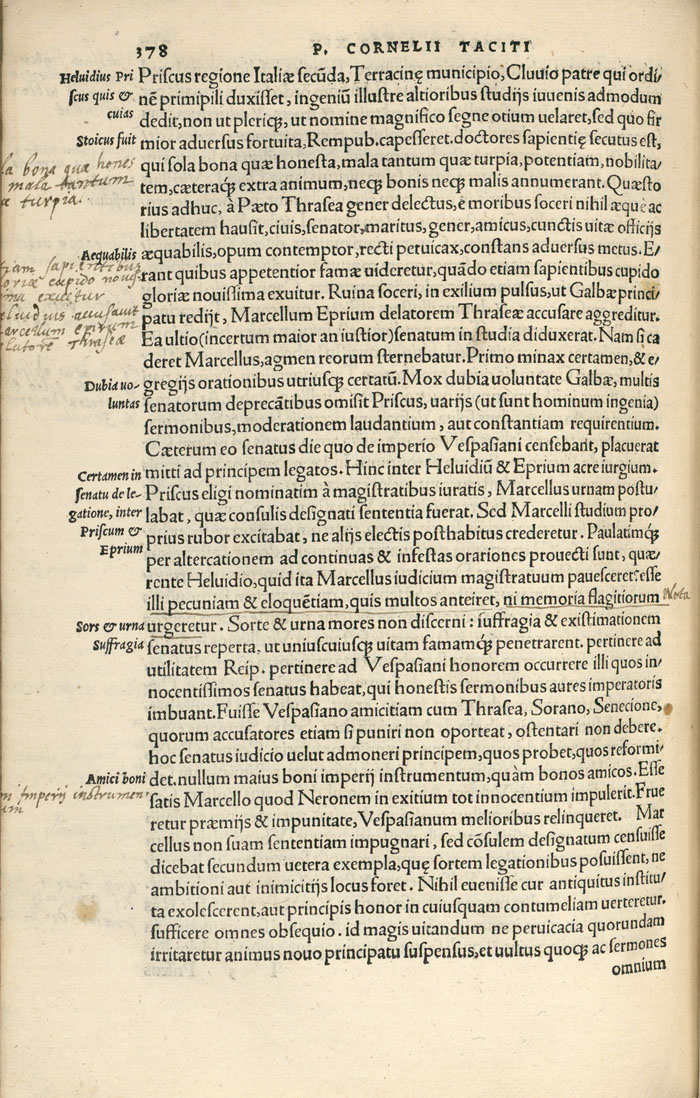 378
P. CORNELII TACITI
Heluidius Pri
scus quis &
cuias
Stoicus fuit
la bona quæ hones
mala tantum
æ turpia.
Aequabilis
gloriæ cupido nouis
ma exuitur
eluidius accusauit
arcellum eprium
latorē Thraseæ
Dubia uo-
luntas
Certamen in
senatu de le-
gatione, inter
Priscum &
Eprium
Sors & urna
Suffragia
Amici boni
Imperij instrumen
Priscus regione Italiæ secūda, Terracinę municipio, Cluuio patre qui ordi/
nē primipili duxisset, ingeniū illustre altioribus studijs iuuenis admodum
dedit, non ut pleriq;, ut nomine magnifico segne otium uelaret, sed quo fir
mior aduersus fortuita, Rempub. capesseret. doctores sapientię secutus est,
qui sola bona quæ honesta, mala tantum quæ turpia, potentiam, nobilita/
tem, cæteraq; extra animum, neq; bonis neq; malis annumerant. Quæsto
rius adhuc, à Pæto Thrasea gener delectus, è moribus soceri nihil æque ac
libertatem hausit, ciuis, senator, maritus, gener, amicus, cunctis uitæ officijs
æquabilis, opum contemptor, recti peruicax, constans aduersus metus. E/
rant quibus appetentior famæ uideretur, quādo etiam sapientibus cupido
gloriæ nouissima exuitur. Ruina soceri, in exilium pulsus, ut Galbæ princi/
patu redijt, Marcellum Eprium delatorem Thraseæ accusare aggreditur.
Ea ultio (incertum maior an iustior) senatum in studia diduxerat. Nam si ca
deret Marcellus, agmen reorum sternebatur. Primo minax certamen, & e/
gregijs orationibus utriusq; certatū. Mox dubia uoluntate Galbæ, multis
senatorum deprecātibus omisit Priscus, uarijs (ut sunt hominum ingenia)
sermonibus, moderationem laudantium, aut constantiam requirentium.
Cæterum eo senatus die quo de imperio Vespasiani censebant, placuerat
mitti ad principem legatos. Hinc inter Heluidiū & Eprium acre iurgium.
Priscus eligi nominatim à magistratibus iuratis, Marcellus urnam postu/
labat, quæ consulis designati sententia fuerat. Sed Marcelli studium pro/
prius rubor excitabat, ne alijs electis posthabitus crederetur. Paulatimq;
per altercationem ad continuas & infestas orationes prouecti sunt, quæ/
rente Heluidio, quid ita Marcellus iudicium magistratuum pauesceret: esse
illi pecuniam & eloquētiam, quis multos anteiret, ni memoria flagitiorum Nota
urgeretur. Sorte & urna mores non discerni: suffragia & existimationem
senatus reperta, ut uniuscuiusq; uitam famamq; penetrarent. pertinere ad
utilitatem Reip. pertinere ad Vespasiani honorem occurrere illi quos in/
nocentissimos senatus habeat, qui honestis sermonibus aures imperatoris
imbuant. Fuisse Vespasiano amicitiam cum Thrasea, Sorano, Senecione,
quorum accusatores etiam si puniri non oporteat, ostentari non debere.
hoc senatus iudicio uelut admoneri principem, quos probet, quos reformi/
det. nullum maius boni imperij instrumentum, quàm bonos amicos. Esse
satis Marcello quod Neronem in exitium tot innocentium impulerit. Frue
retur præmijs & impunitate, Vespasianum melioribus relinqueret. Mar
cellus non suam sententiam impugnari, sed cōsulem designatum censuisse
dicebat secundum uetera exempla, quę sortem legationibus posuissent, ne
ambitioni aut inimicitijs locus foret. Nihil euenisse cur antiquitus institu/
ta exolescerent, aut principis honor in cuiusquam contumeliam uerteretur.
sufficere omnes obsequio. id magis uitandum ne peruicacia quorundam
irritaretur animus nouo principatu suspensus, et uultus quoq; ac sermones
omnium